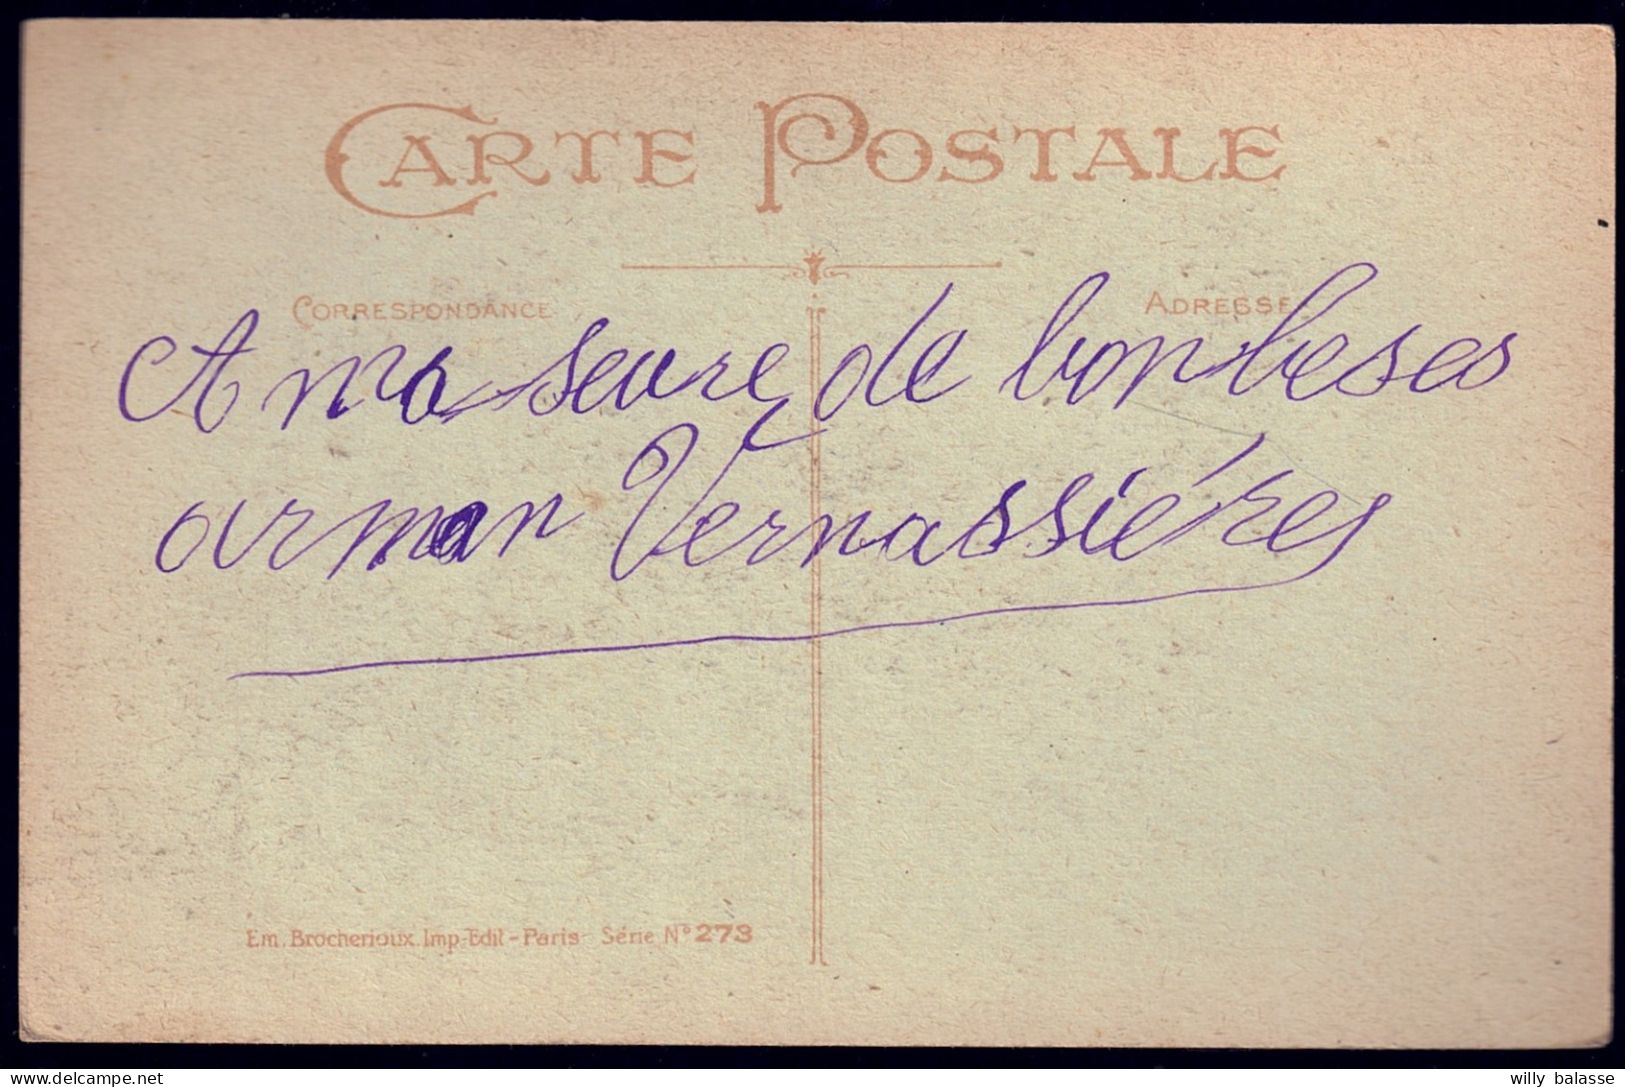 CARTE POSTALE
CORRESPONDANCE
ADRESSE
A ma seure de bonbeses
arman Vernassiéres
Em. Brocherioux. Imp-Edit - Paris - Série N° 273
delcampe.net
willy balasse